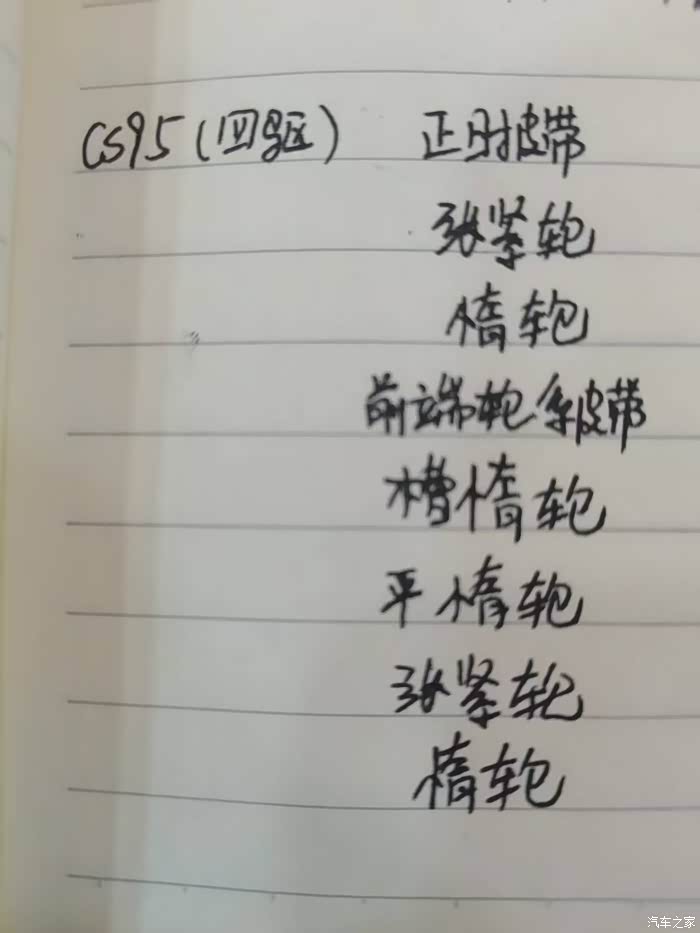 CS95(四驱) 正时皮带
张紧轮
惰轮
前端轮系皮带
槽惰轮
平惰轮
张紧轮
惰轮
汽车之家